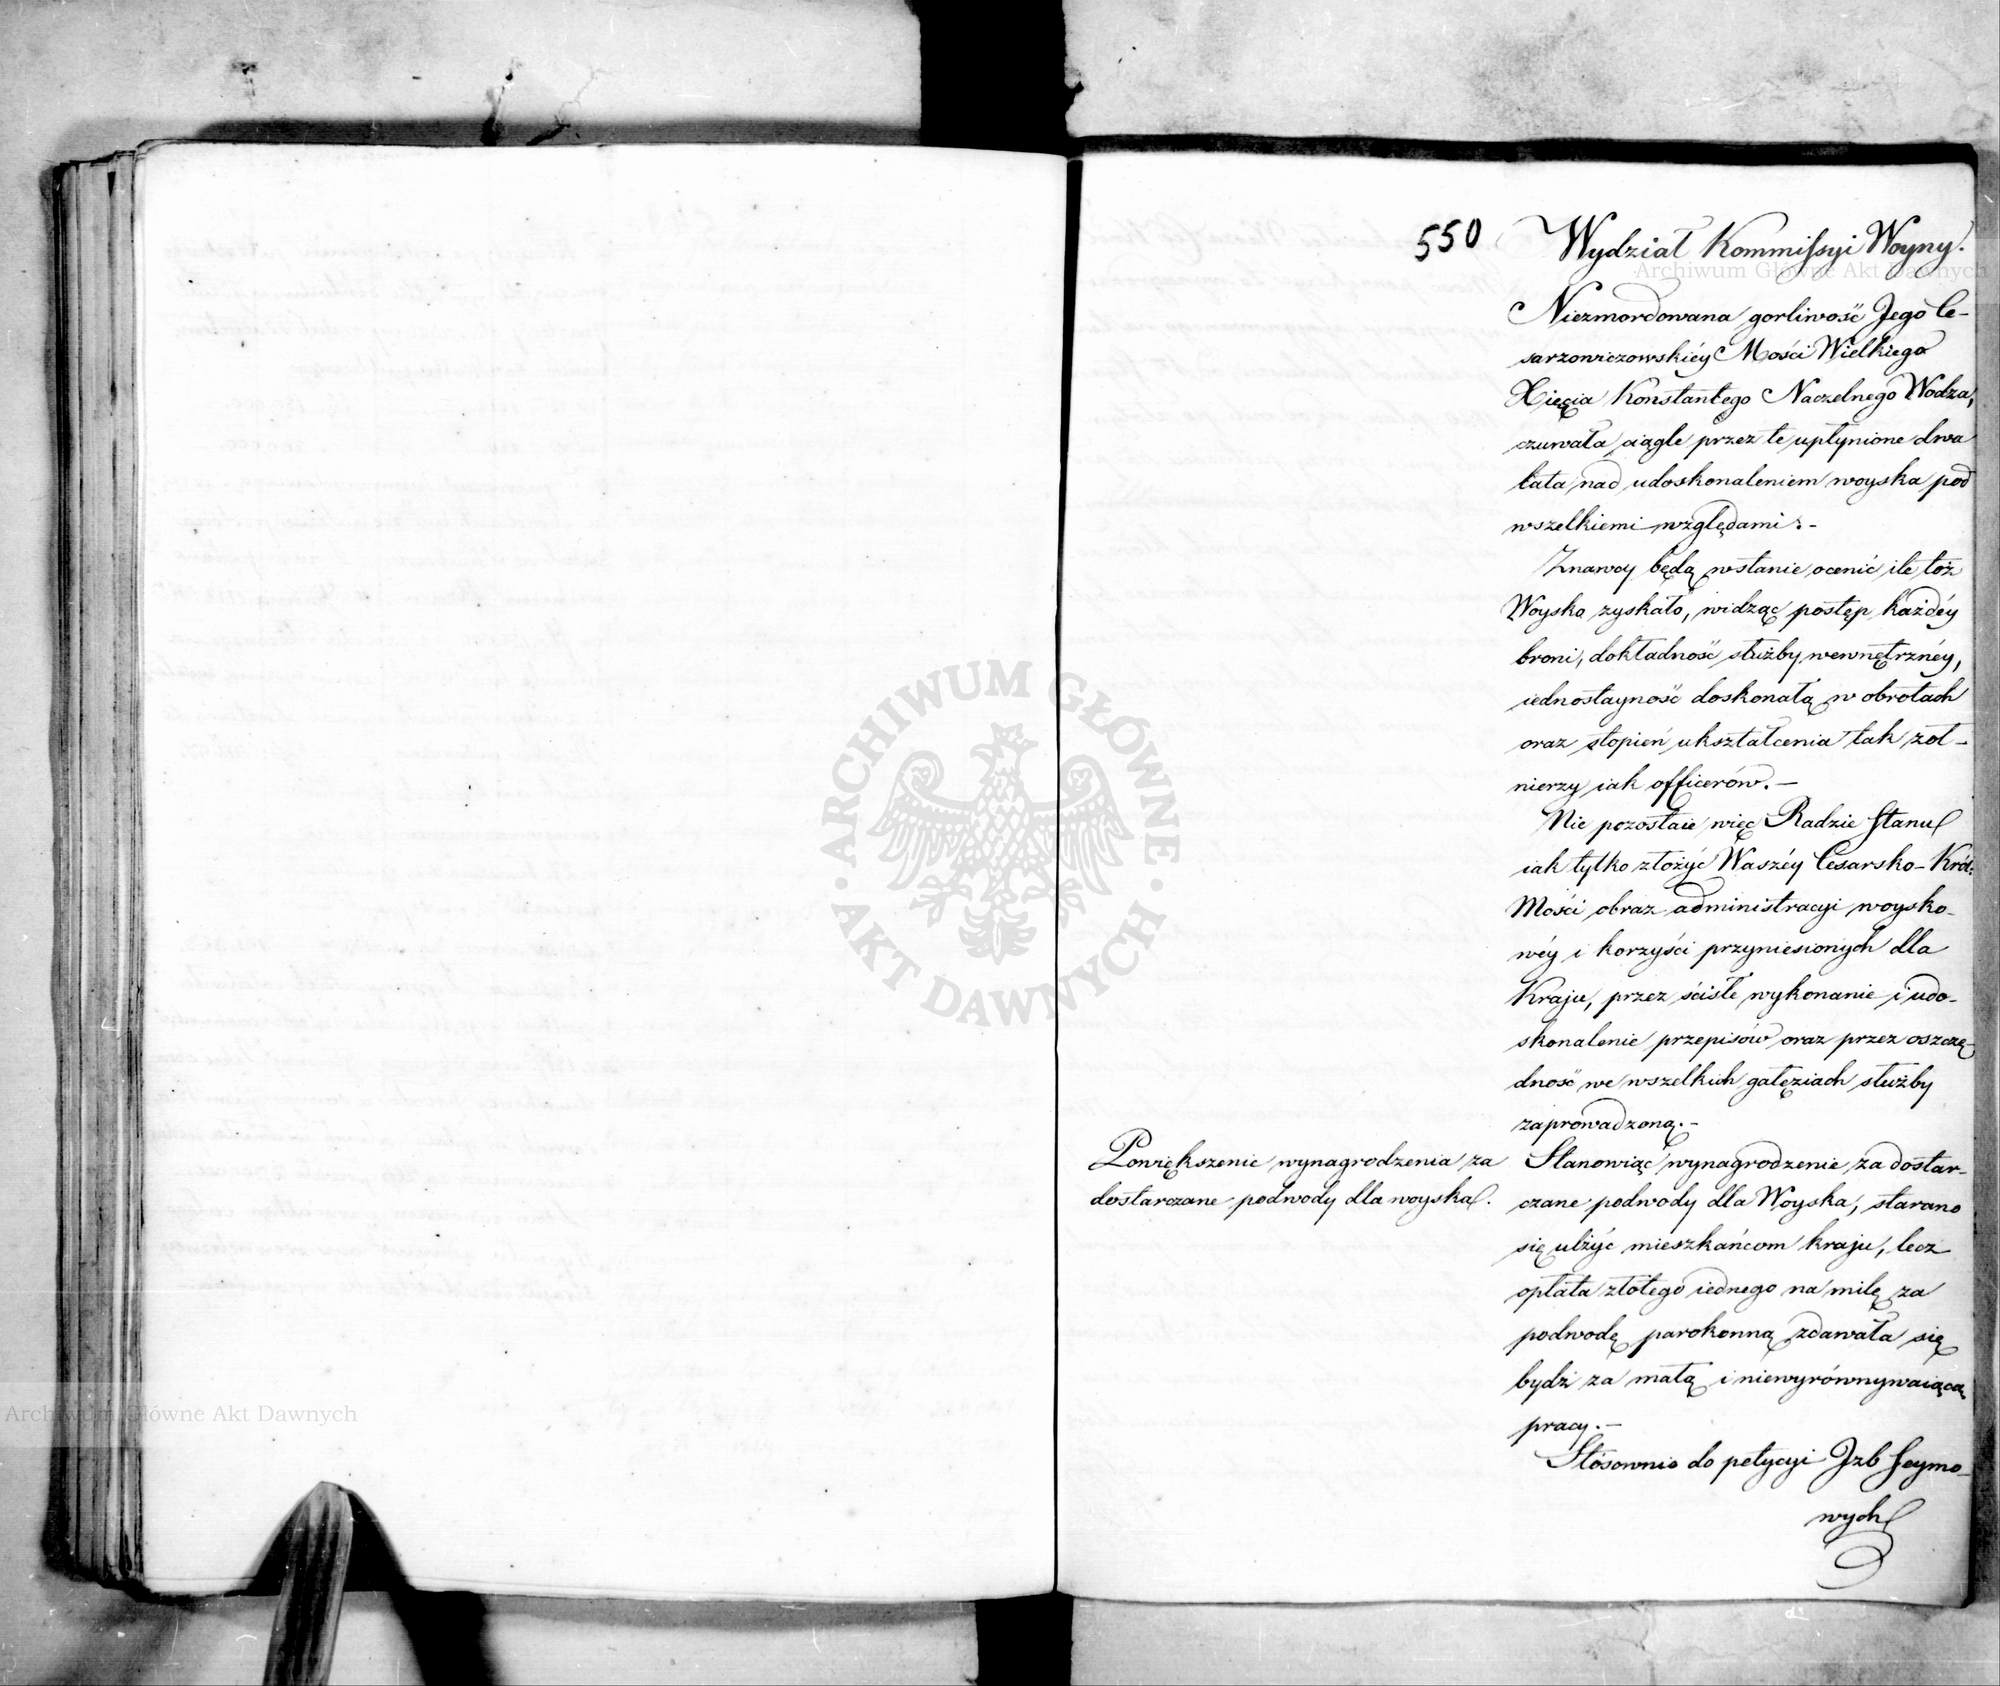 550
Wydział Kommissyi Woyny.
Niezmordowana gorliwość Jego Ce-
sarzowiczowskiéy Mości Wielkiego
Xięcia Konstantego Naczelnego Wodza,
czuwała ciągle przez te upłynione dwa
lata nad udoskonaleniem woyska pod
wszelkiemi względami.-
Znawcy będą wstanie ocenić ile toż
Woysko zyskało, widząc postęp każdéy
broni, dokładność służby wewnętrznéy,
iednostayność doskonałą w obrotach
oraz stopień ukształcenia tak żoł-
nierzy iak officerów.-
Nie pozostaie więc Radzie Stanu
iak tylko złożyć Waszéy Cesarsko-Król:
Mości obraz administracyi woysko-
wéy i korzyści przyniesionych dla
Kraju, przez ścisłe wykonanie i udo-
skonalenie przepisów oraz przez oszczę-
dność we wszelkich gałęziach służby
zaprowadzoną.-
Powiększenie wynagrodzenia za
dostarczane podwody dla woyska.
Stanowiąc wynagrodzenie za dostar-
czane podwody dla Woyska, starano
się ulżyć mieszkańcom kraju, lecz
opłata złotego iednego na milę za
podwodę parokonną zdawała się
bydź za małą i niewyrównywaiącą
pracy.-
Stósownie do petycyi Izb Seymo-
wych
ARCHIWUM GŁÓWNE
AKT DAWNYCH
Archiwum Główne Akt Dawnych
Archiwum Główne Akt Dawnych